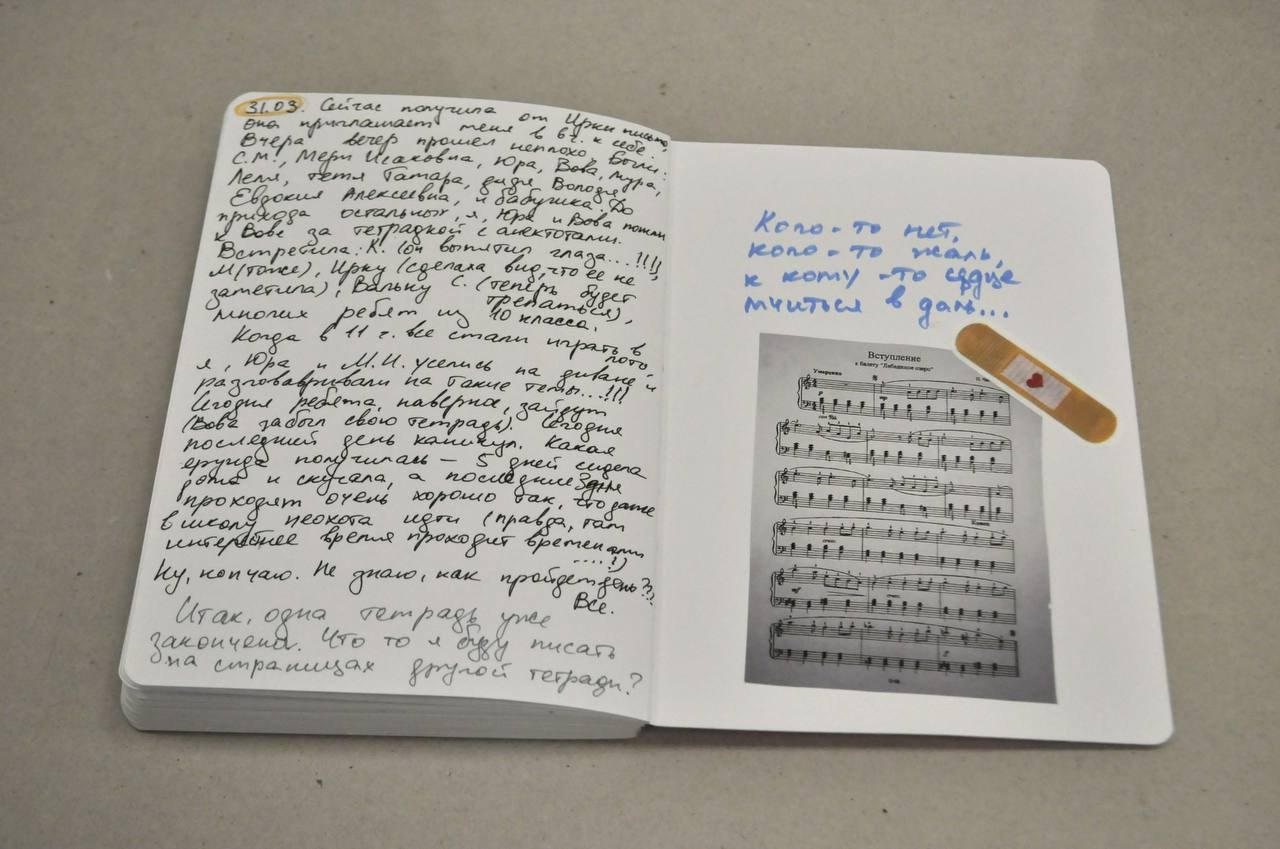 31.03. Сейчас получила от Ирки письмо,
она приглашает меня в 6 ч. к себе.
Вчера вечер прошел неплохо. Были:
С.М., Мери Исаковна, Юра, Вова, Мура,
Леля, тетя Тамара, дядя Володя,
Евдокия Алексеевна, и бабушка. До
прихода остальных, я, Юра и Вова пошли
к Вове за тетрадкой с анектотами.
Встретила: К. (он выпятил глаза...!!!!,
М(тоже), Ирку (сделала вид, что ее не
заметила), Вальку С. (теперь будет
трепаться),
многих ребят из 10 класса.
Когда в 11 г. все стали играть в
лото,
я, Юра и М.И. уселись на диване и
разговавривали на такие темы...!!!
Сегодня ребята, наверна, зайдут
(Вова забыл свою тетрадь). Сегодня
последний день каникул. Какая
ерунда получилась – 5 дней сидела
дома и скучала, а последние 3 дня
проходят очень хорошо так, что даже
в школу неохота идти (правда, там
интереснее время проходит временами
....!)
Ну, кончаю. Не знаю, как пройдет день??.
Все.
Итак, одна тетрадь уже
закончена. Что то я буду писать
на страницах другой тетради?
Кого-то нет,
кого-то жаль,
к кому-то сердце
мчиться в даль...
Вступление
к балету "Лебединое озеро"
Умеренно